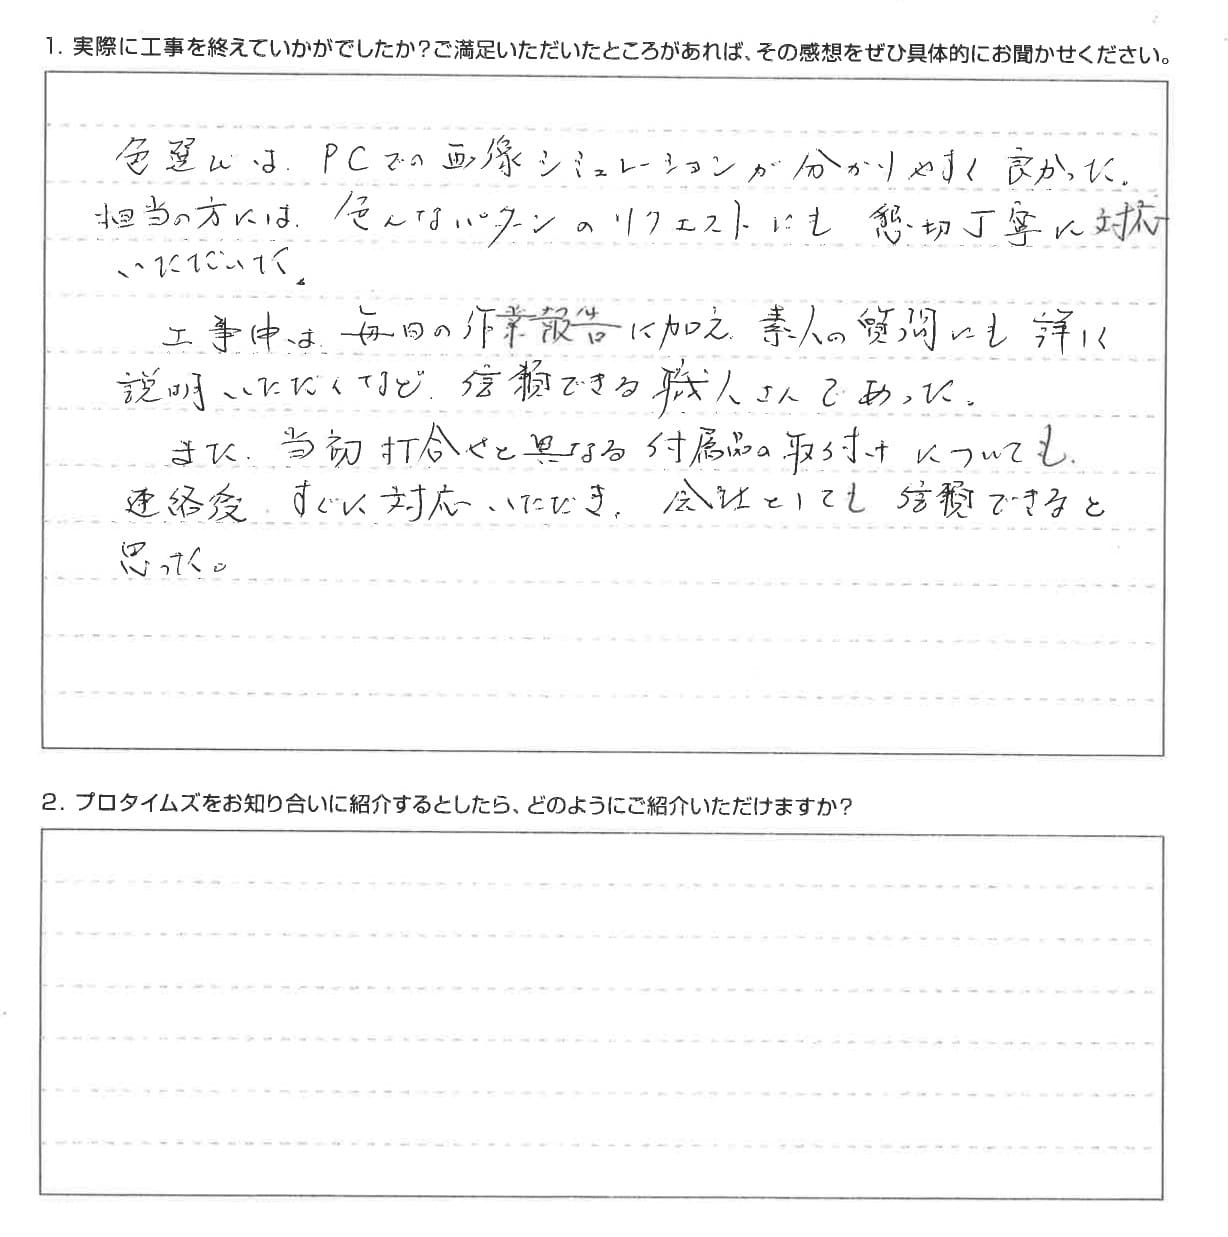 1. 実際に工事を終えていかがでしたか?ご満足いただいたところがあれば、その感想をぜひ具体的にお聞かせください。
色選びは、PCでの画像シミュレーションが分かりやすく良かった。
担当の方には、色んなパターンのリクエストにも懇切丁寧に対応
いただいた。
工事中は、毎日の作業報告に加え、素人の質問にも詳しく
説明いただくなど、信頼できる職人さんであった。
また、当初打合せと異なる付属品の取り付けについても、
連絡後、すぐに対応いただき、会社としても信頼できると
思った。
2. プロタイムズをお知り合いに紹介するとしたら、どのようにご紹介いただけますか?